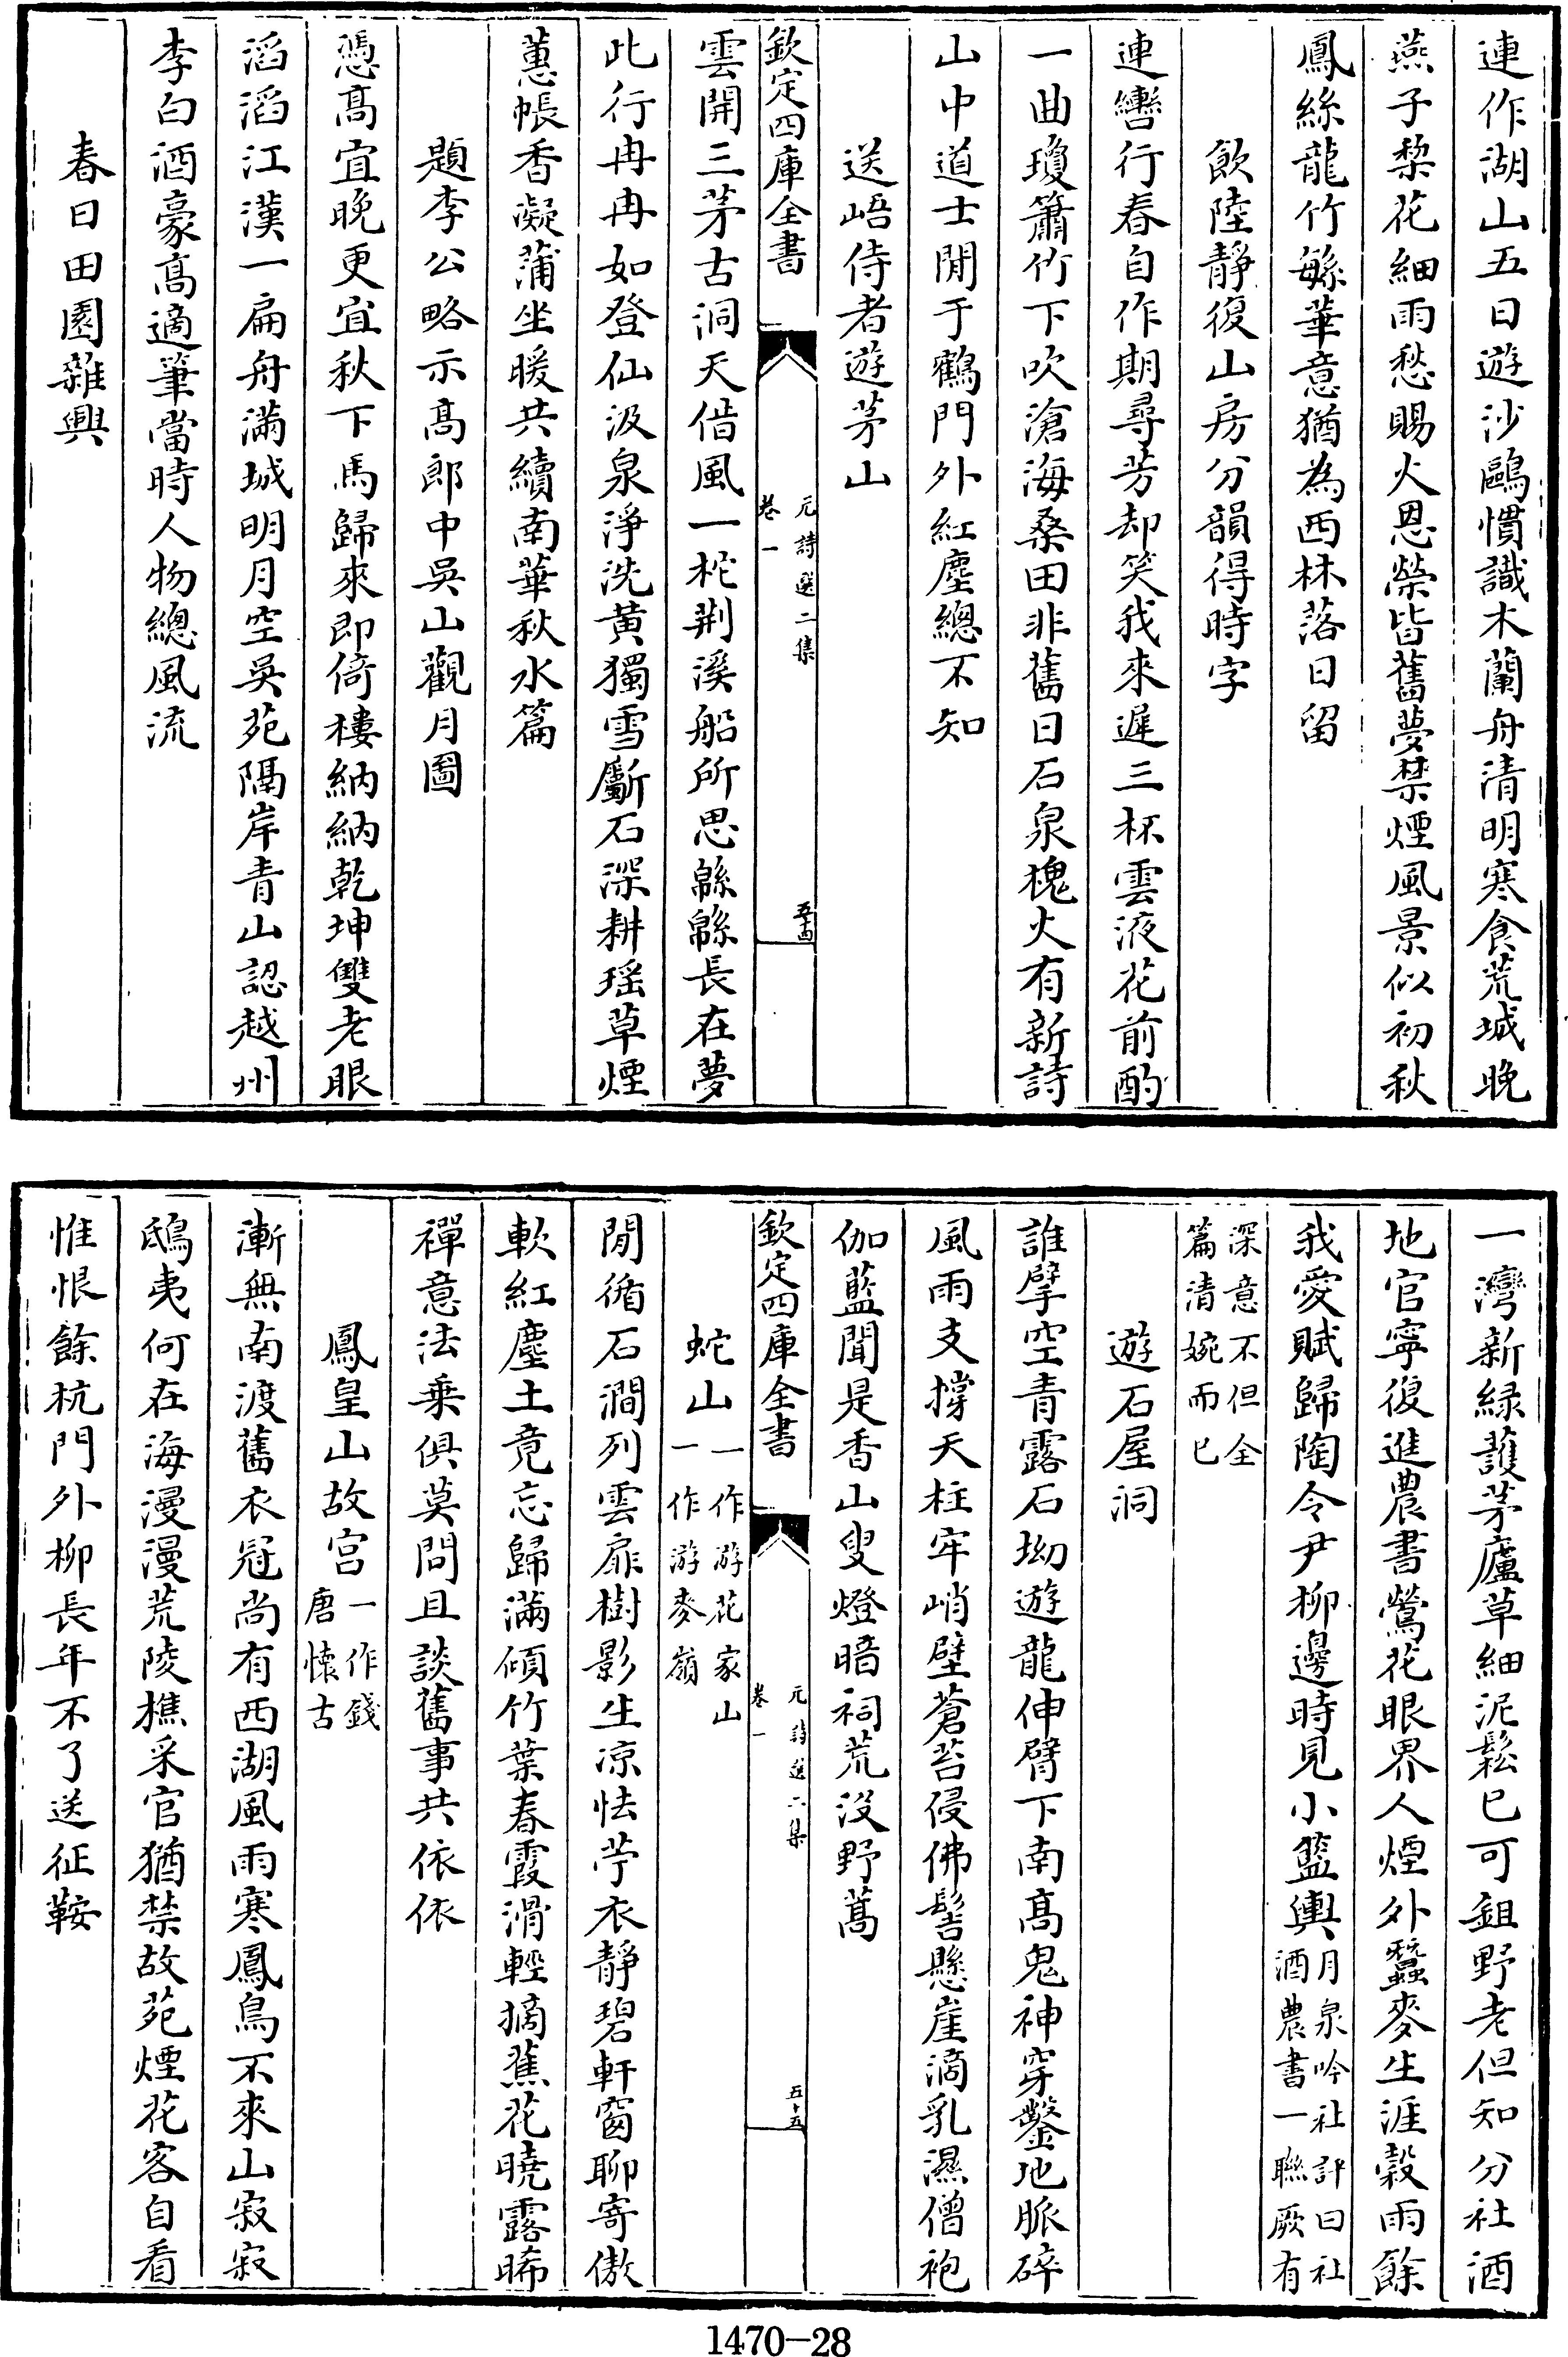 連作湖山五日遊沙鷗慣識木蘭舟清明寒食荒城晚
燕子棃花細雨愁賜火恩榮皆舊夢禁煙風景似初秋
鳳絲龍竹繁華意猶為西林落日留
飲陸靜復山房分韻得時字
連轡行春自作期尋芳却笑我來遲三杯雲液花前酌
一曲瓊簫竹下吹滄海桑田非舊日石泉槐火有新詩
山中道士閒于鶴門外紅塵總不知
送㟃侍者遊茅山
欽定四庫全書
元詩選二集
卷一
五十四
雲開三茅古洞天借風一柁荆溪船所思緜緜長在夢
此行冉冉如登仙汲泉淨洗黃獨雪斸石深耕瑶草煙
蕙帳香凝蒲坐暖共續南華秋水篇
題李公略示髙郎中吳山觀月圖
憑髙宜晚更宜秋下馬歸來即倚樓納納乾坤雙老眼
滔滔江漢一扁舟滿城明月空吳苑隔岸青山認越州
李白酒豪髙適筆當時人物總風流
春日田園雜興
一灣新緑護茅廬草細泥鬆已可鉏野老但知分社酒
地官寧復進農書鶯花眼界人煙外蠶麥生涯穀雨餘
我愛賦歸陶令尹柳邊時見小籃輿月泉吟社評曰社
酒農書一聯厥有
深意不但全
篇清婉而已
遊石屋洞
誰擘空青露石坳遊龍伸臂下南髙鬼神穿鑿地脈碎
風雨支撐天柱牢峭壁蒼苔侵佛髻懸崖滴乳濕僧袍
伽藍聞是香山叟燈暗祠荒沒野蒿
欽定四庫全書
元詩選二集
卷一
五十五
蛇山一作游花家山
一作游麥嶺
閒循石澗列雲扉樹影生凉怯苧衣靜碧軒窗聊寄傲
軟紅塵土竟忘歸滿傾竹葉春霞滑輕摘蕉花曉露晞
禪意法乗俱莫問且談舊事共依依
鳳皇山故宫一作錢
唐懷古
漸無南渡舊衣冠尚有西湖風雨寒鳳鳥不來山寂寂
鴟夷何在海漫漫荒陵樵采官猶禁故苑煙花客自看
惟恨餘杭門外柳長年不了送征鞍
1470-28